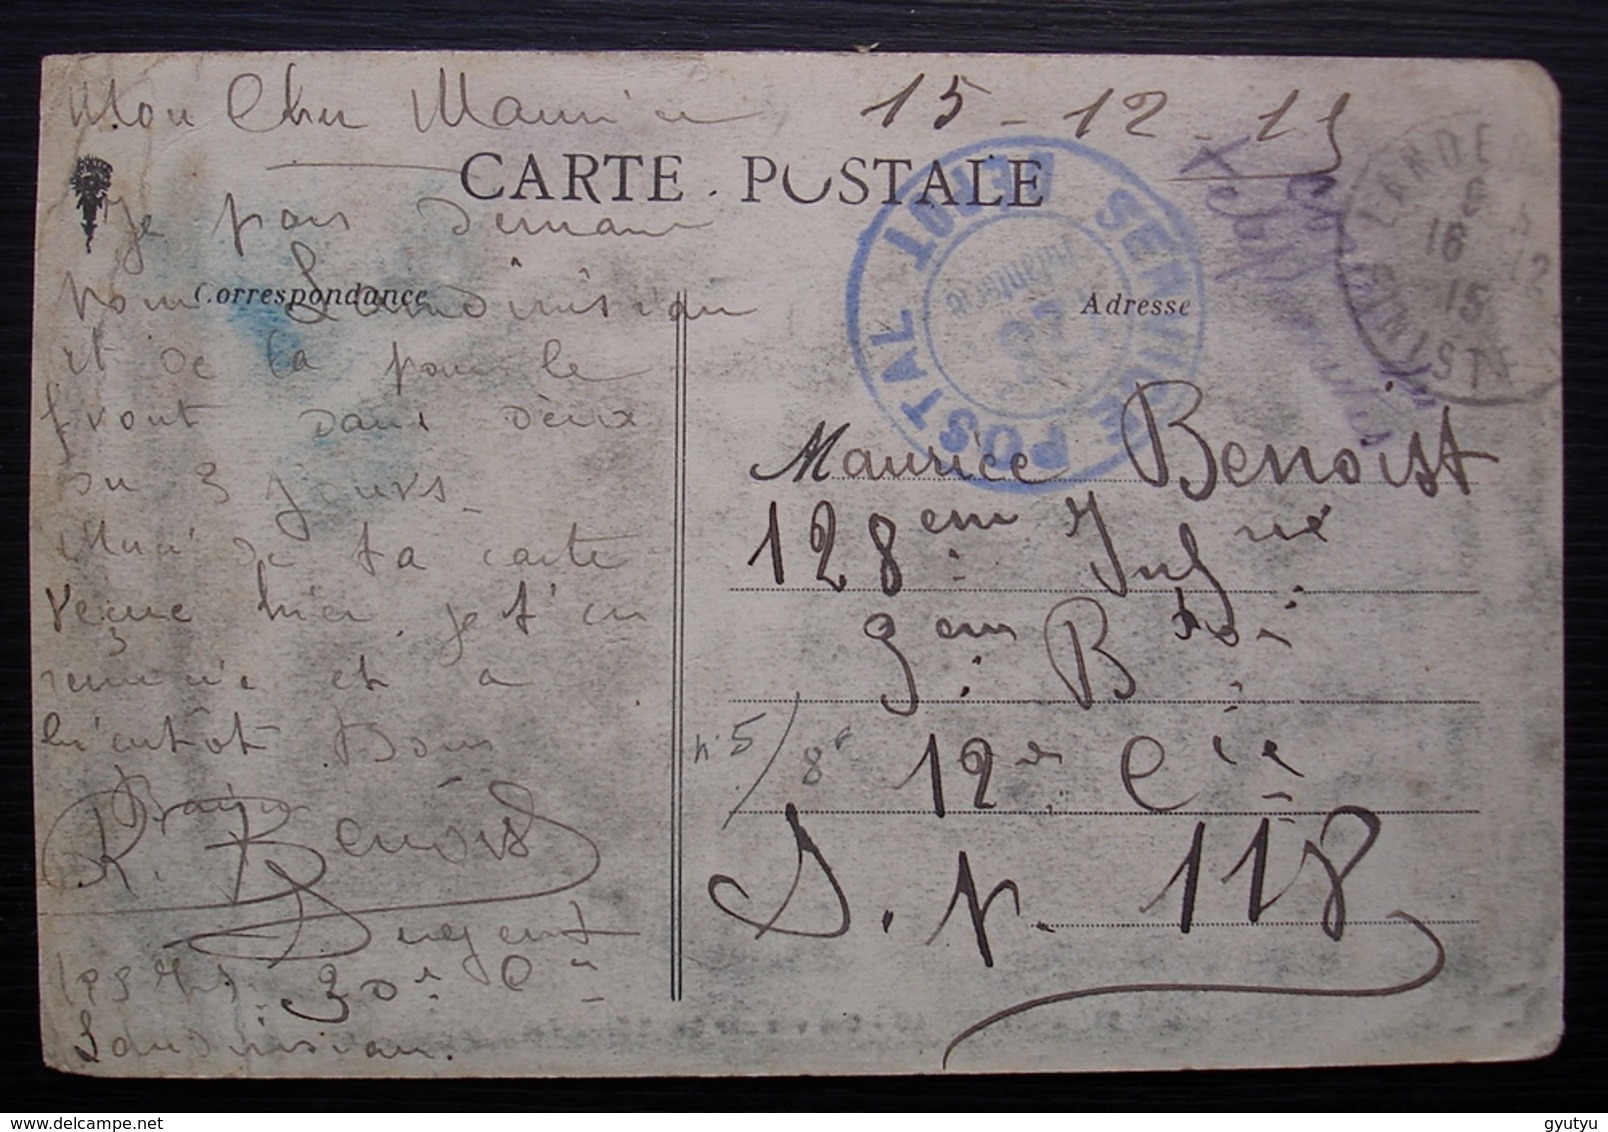 Mon Cher Maurice
15-12-15
CARTE POSTALE
Je pars demain
pour Landivisiau
Correspondance
et de la pour le
front dans deux
ou 3 jours
Merci de ta carte
reçue hier, je t'en
remercie et a
bientôt Bons
Baisers
R. Benoist
Sergent
30e Cie
Landivisiau.
SERVICE POSTAL
DEPOT
Infanterie
LANDE
6
16 12
15
FINISTE
Adresse
Maurice Benoist
128eme Infrie
3eme B
n°5/
12e Cie
S.p. 118
delcampe.net
gyutyu